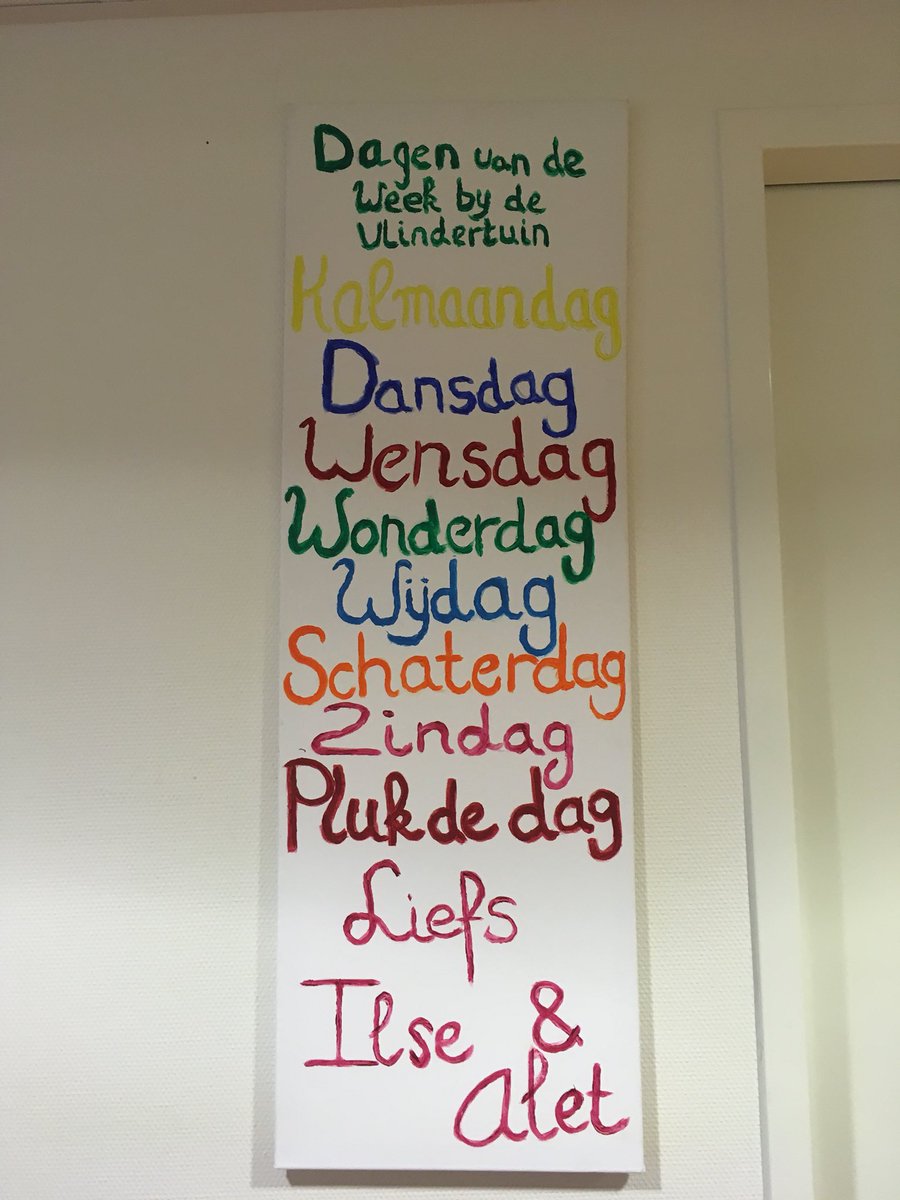 Dagen van de
Week by de
Vlindertuin
Kalmaandag
Dansdag
Wensdag
Wonderdag
Wijdag
Schaterdag
Zindag
Pluk de dag
Liefs
Ilse &
Alet